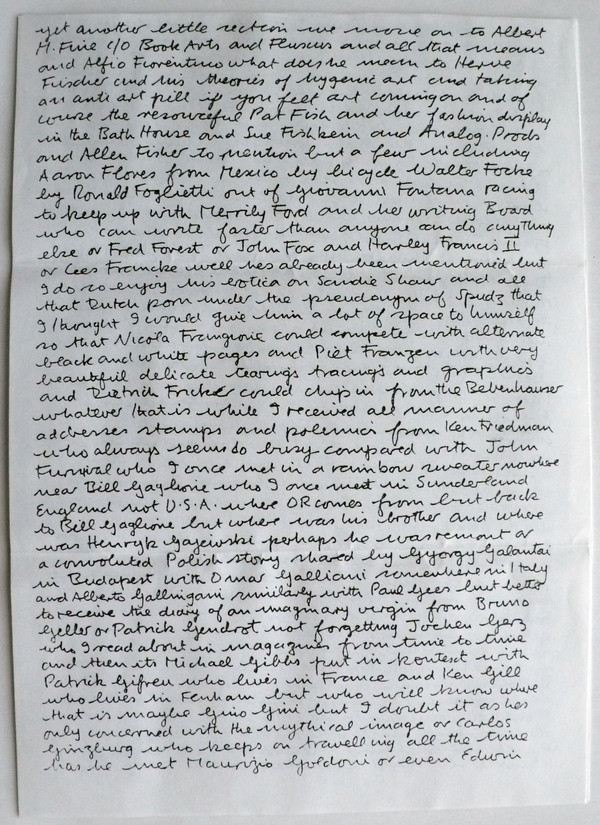 yet another little section we move on to Albert
M. Fine c/o Book Arts and Fluxus and all that means
and Alfio Fiorentino what does he mean to Herve
Fischer and his theories of hygenic art and taking
an anti art pill if you feel art coming on and of
course the resourceful Pat Fish and her fashion display
in the Bath House and Sue Fishbein and Analog. Prods
and Allen Fisher to mention but a few including
Aaron Flores from Mexico by bicycle Walter Focke
by Ronald Foglietti out of Giovanni Fontana racing
to keep up with Merrily Ford and her writing Board
who can write faster than anyone can do anything
else or Fred Forest or John Fox and Harley Francis II
or Cees Francke well hes already been mentioned but
I do so enjoy his erotica on Sandie Shaw and all
that Dutch porn under the pseudonym of Spudz that
I thought I would give him a lot of space to himself
so that Nicola Frangione could compete with alternate
black and white pages and Piet Franzen with very
beautiful delicate tearings tracings and graphics
and Dietrich Fricker could chip in from the Bebenhauser
whatever that is while I received all manner of
addresses stamps and polemics from Ken Friedman
who always seems so busy compared with John
Furnival who I once met in a rainbow sweater nowhere
near Bill Gaglione who I once met in Sunderland
England not U.S.A. where OR comes from but back
to Bill Gaglione but where was his brother and where
was Henryk Gajewski perhaps he was remont or
a convoluted Polish story shared by Gyorgy Galantai
in Budapest with Omar Galliani somewhere in Italy
and Alberto Gallingani similarly with Paul Gees but better
to receive the diary of an imaginary virgin from Bruno
Geller or Patrick Gendrot not forgetting Jochen Gerz
who I read about in magazines from time to time
and then its Michael Gibbs put in kontext with
Patrick Gifreu who lives in France and Ken Gill
who lives in Fenham but who will know where
that is maybe Gino Gini but I doubt it as hes
only concerned with the mythical image or Carlos
Ginzburg who keeps on travelling all the time
has he met Maurizio Goldoni or even Edwin